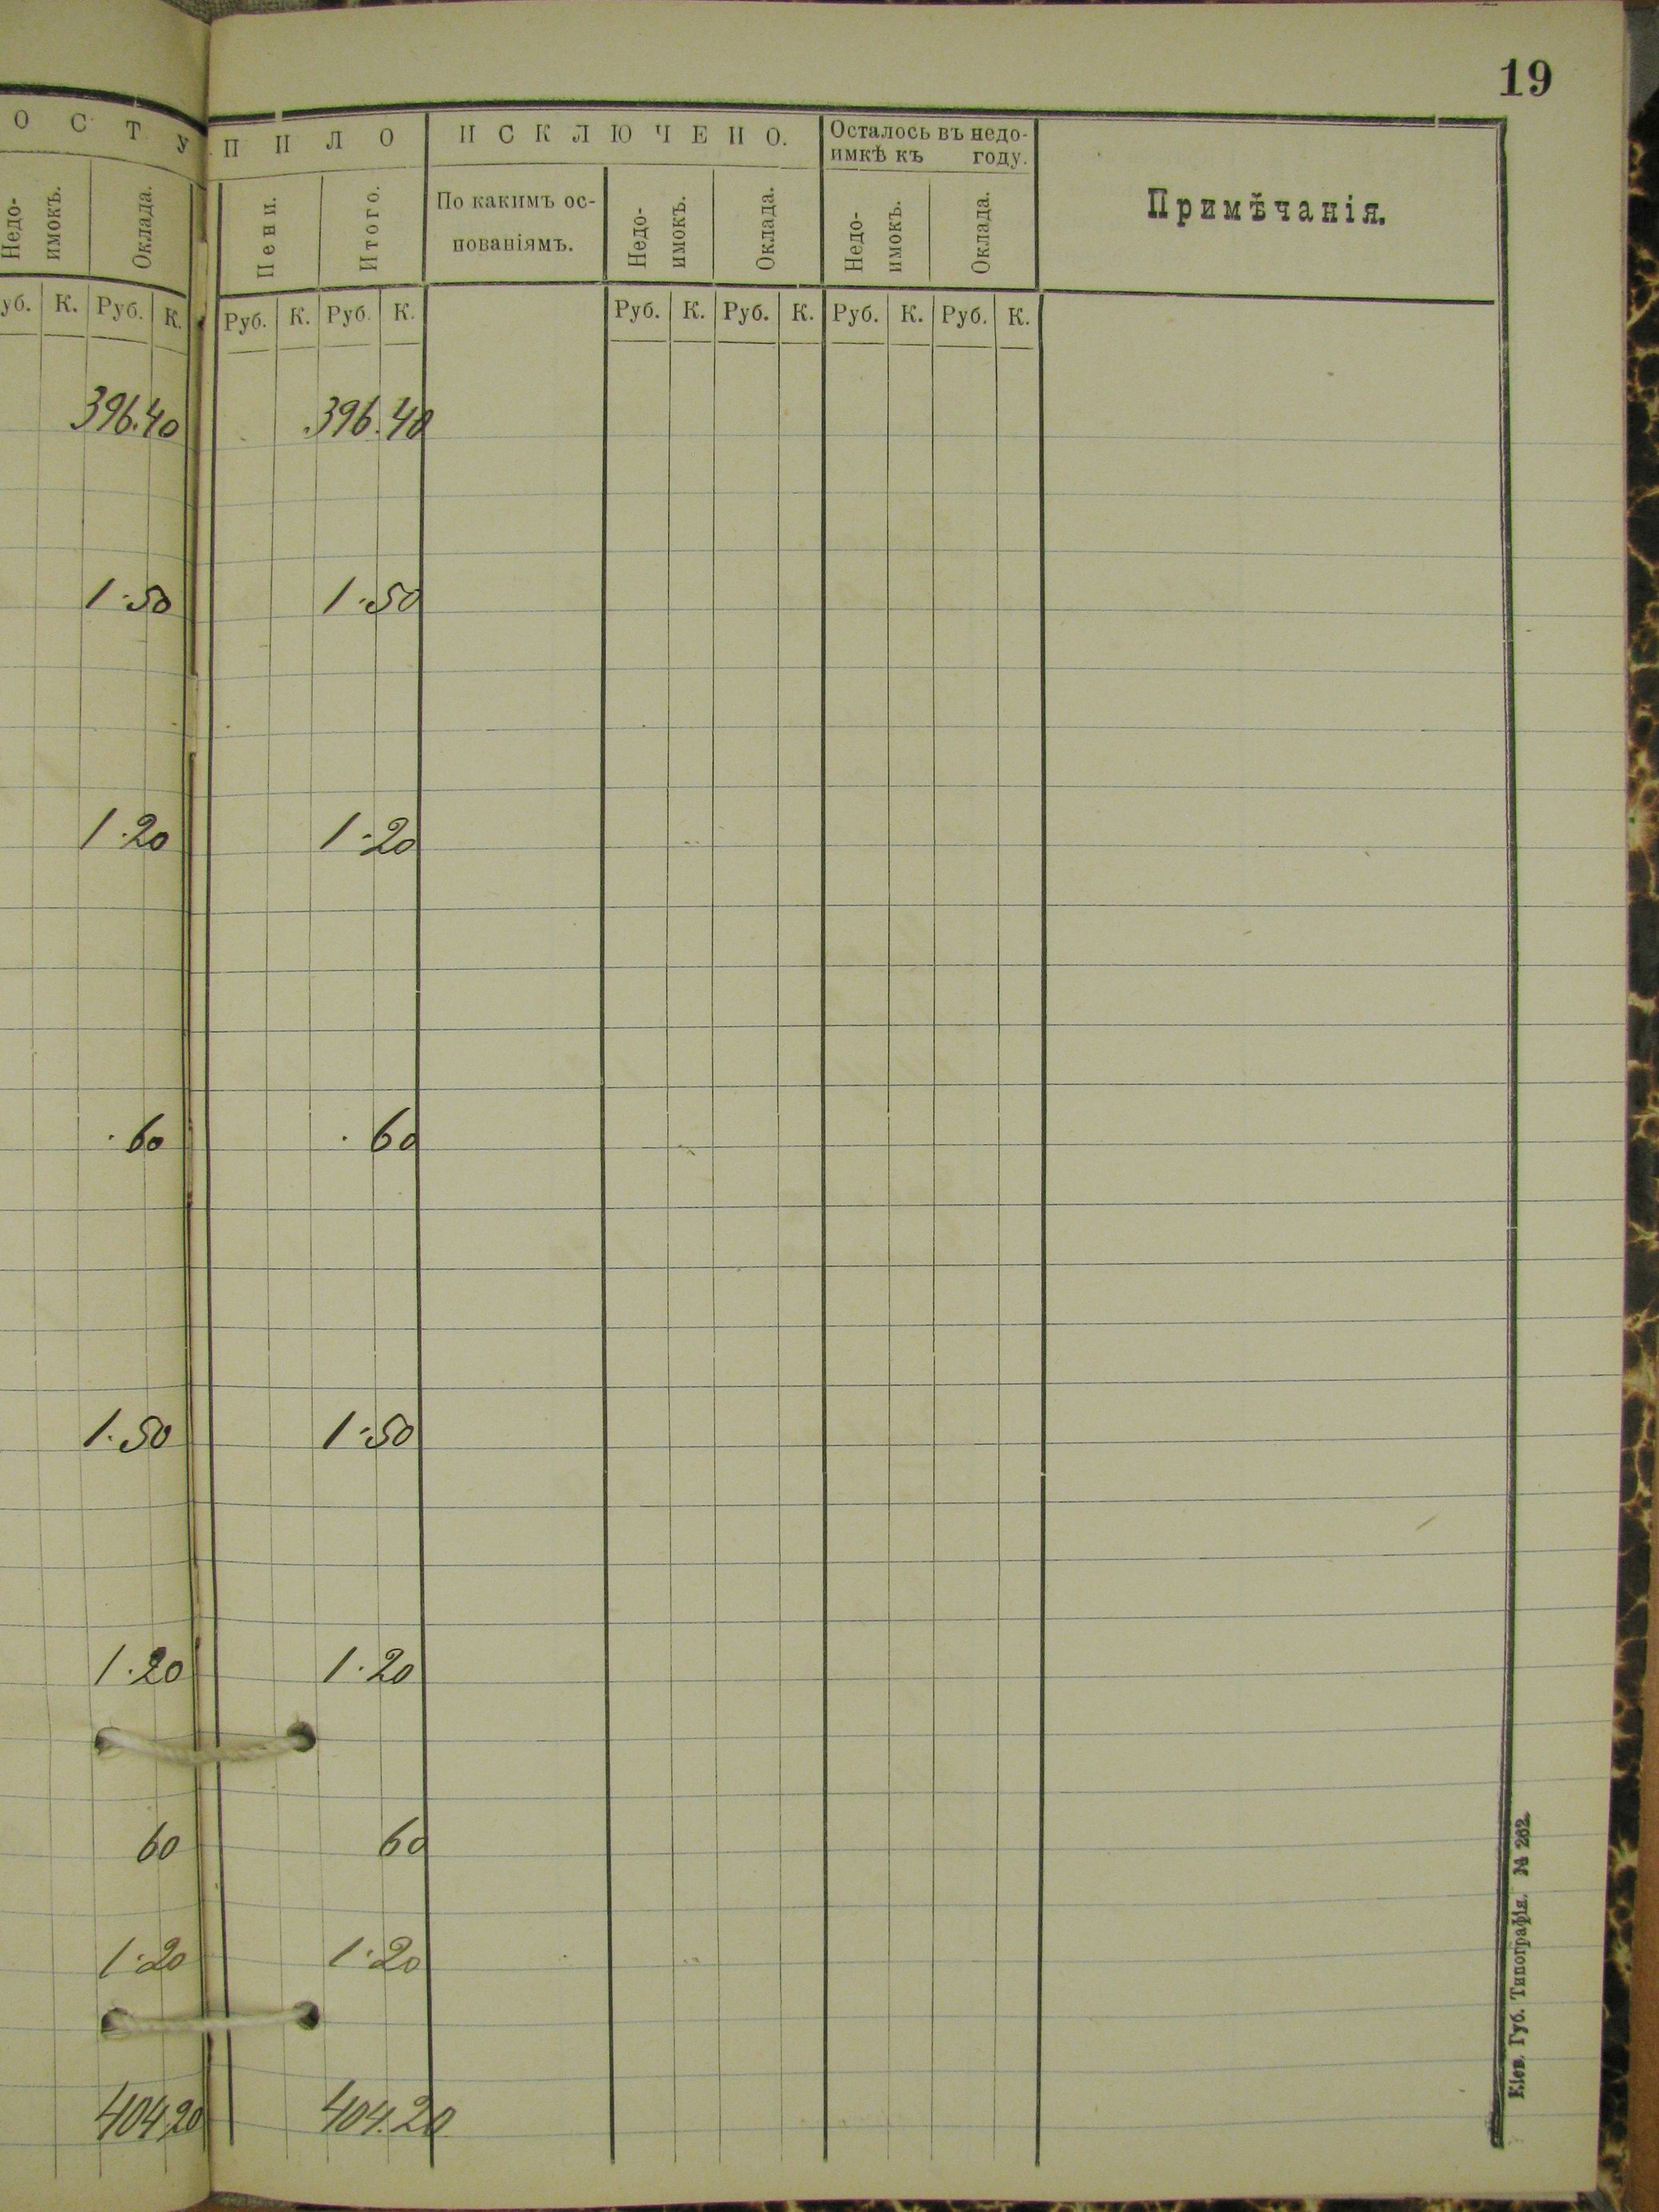 19
О С Т У П И Л О И С К Л Ю Ч Е Н О. Осталось въ недо-
имкѣ къ году.
Недо-
имокъ. Оклада. Пени. Итого. По какимъ ос-
нованіямъ. Недо-
имокъ. Оклада. Недо-
имокъ. Оклада. Примѣчанія.
уб. К. Руб. К. Руб. К. Руб. К. Руб. К. Руб. К. Руб. К. Руб. К.
396.40 396.40
1.50 1.50
1.20 1.20
. 60 . 60
1.50 1.50
1.20 1.20
60 60
1.20 1.20
404.20 404.20
Кіев. Губ. Типографія. № 262.